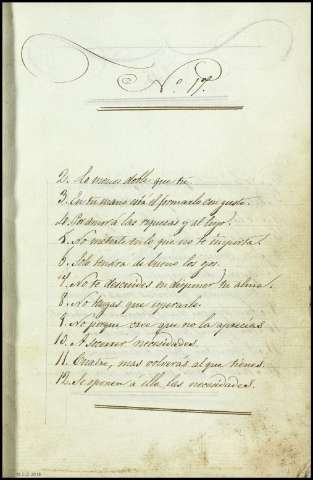 Nº 17.
2. Lo menos doble que tú.
3. En tu mano está el formarlo con gusto.
4. Por amor á las riquezas y al lujo.
5. No meterte en lo que no te importa.
6. Solo tendra de bueno los ojos.
7. No te descuides en disponer tu alma.
8. No tengas que esperarlo.
9. No porque cree que no la aprecias
10. A socorrer necesidades.
11. Cuatro, mas volverás al que tienes.
12. Se oponen á ella las necesidades.